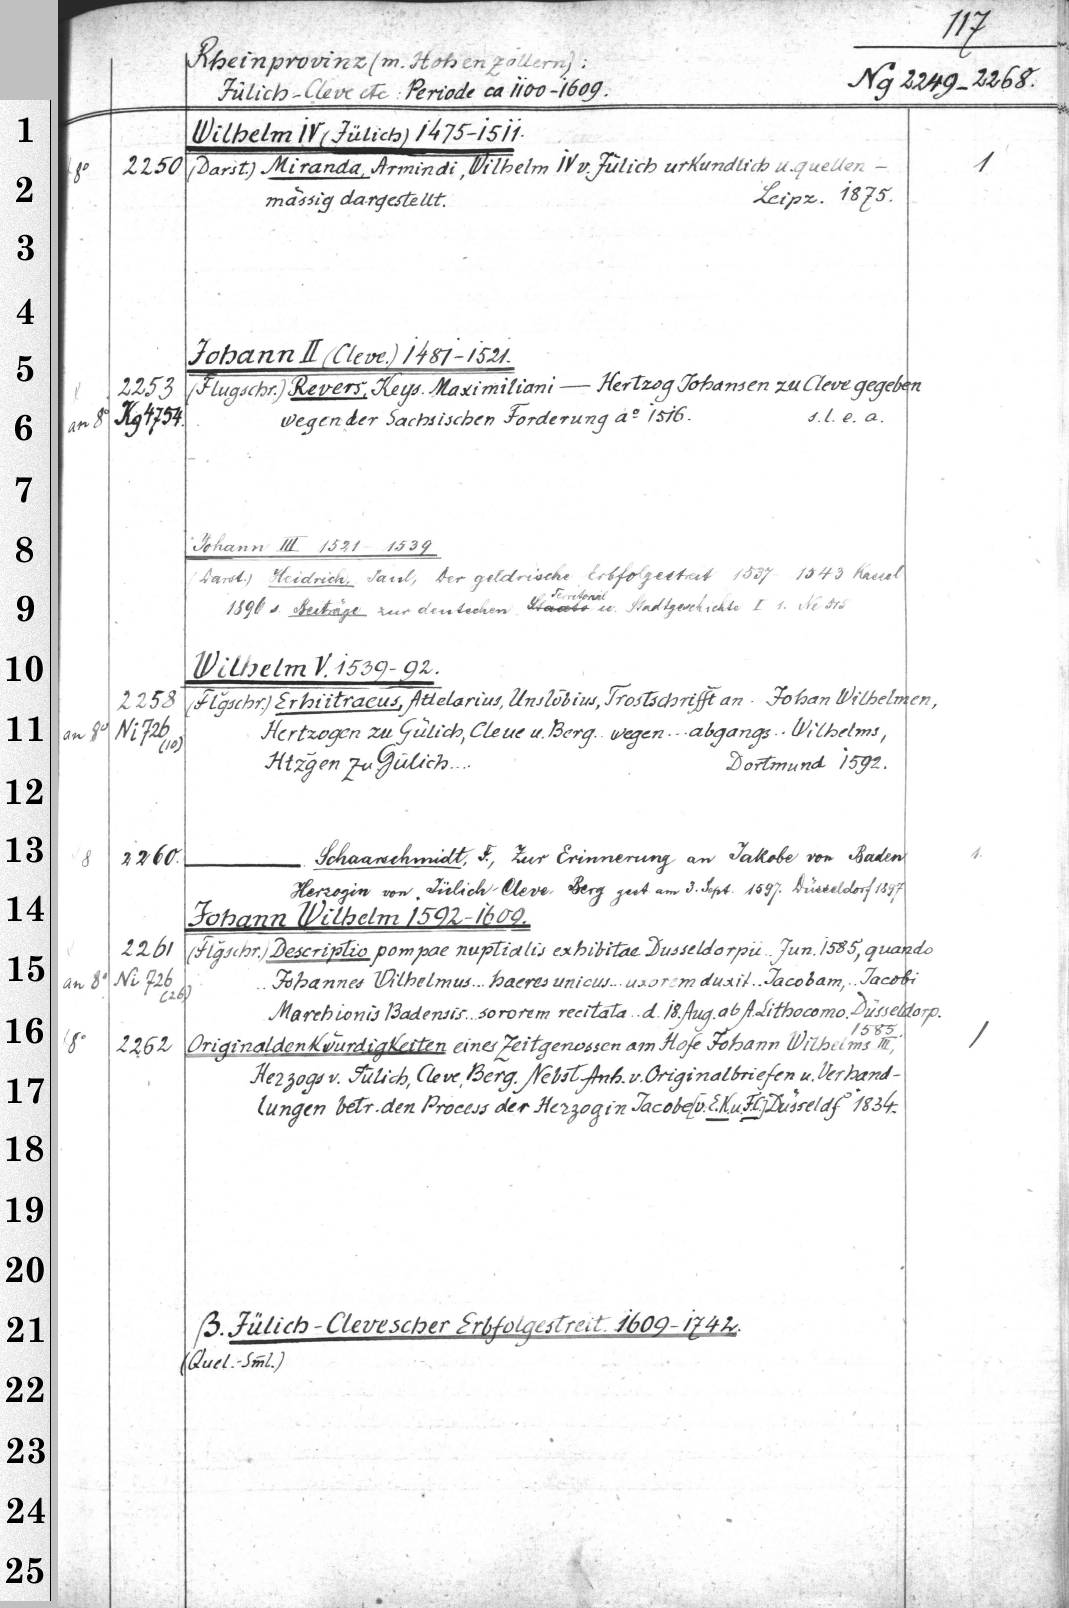 117
Rheinprovinz (m. Hohenzollern):
Jülich-Cleve etc: Periode ca 1100-1609.
Ng 2249-2268.
1
Wilhelm IV (Jülich) 1475-1511.
8° 2250 (Darst.) Miranda, Armindi, Wilhelm IV v. Jülich urkundlich u. quellen- 1
2
mässig dargestellt. Leipz. 1875.
3
4
Johann II (Cleve.) 1481-1521.
5
2253 (Flugschr.) Revers, Keys. Maximiliani — Hertzog Johansen zu Cleve gegeben
6
an 8° Kg 4754. wegen der Sachsischen Forderung a° 1516. s.l.e.a.
7
8
Johann III 1521-1539
(Darst.) Heidrich, Paul, Der geldrische Erbfolgestreit 1537-1543 Kassel
9
1896 s. Beiträge zur deutschen Staats Territorial u. Stadtgeschichte I 1. Ne 515
10
Wilhelm V. 1539-92.
2258 (Flgschr.) Erhiitracus, Attelarius, Unslöbius, Trostschrifft an . Johan Wilhelmen,
11
an 8° Ni 726 (10) Hertzogen zu Gülich, Cleue u. Berg.. wegen... abgangs.. Wilhelms,
Htzgen zu Gülich.... Dortmund 1592.
12
13
8 2260. Schaarschmidt, F., Zur Erinnerung an Jakobe von Baden 1.
Herzogin von Jülich-Cleve Berg gest am 3. Sept. 1597. Düsseldorf 1897
14
Johann Wilhelm 1592-1609.
2261 (Flgschr.) Descriptio pompae nuptialis exhibitae Dusseldorpii.. Jun. 1585, quando
15
an 8° Ni 726 (26) .. Johannes Wilhelmus... haeres unicus... uxorem duxit.. Jacobam,.. Jacobi
Marchionis Badensis.. sororem recitata.. d. 18. Aug. ab A. Lithocomo. Düsseldorp.
1585
16
8° 2262 Originaldenkwürdigkeiten eines Zeitgenossen am Hofe Johann Wilhelms III, 1
17
Herzogs v. Jülich, Cleve, Berg. Nebst Anh. v. Originalbriefen u. Verhand-
lungen betr. den Process der Herzogin Jacobe [v. E.K u. Fl.] Düsseldf 1834.
18
19
20
21
B. Jülich-Clevescher Erbfolgestreit. 1609-1742.
(Quel.-Sml.)
22
23
24
25